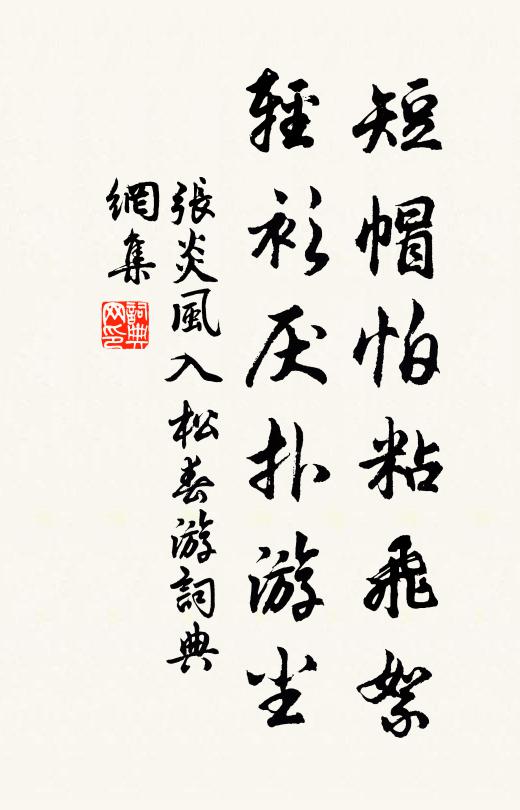 短帽怕粘飛絮
輕衫厌扑游尘
張炎風入松春游詞典
網集
詞典网印